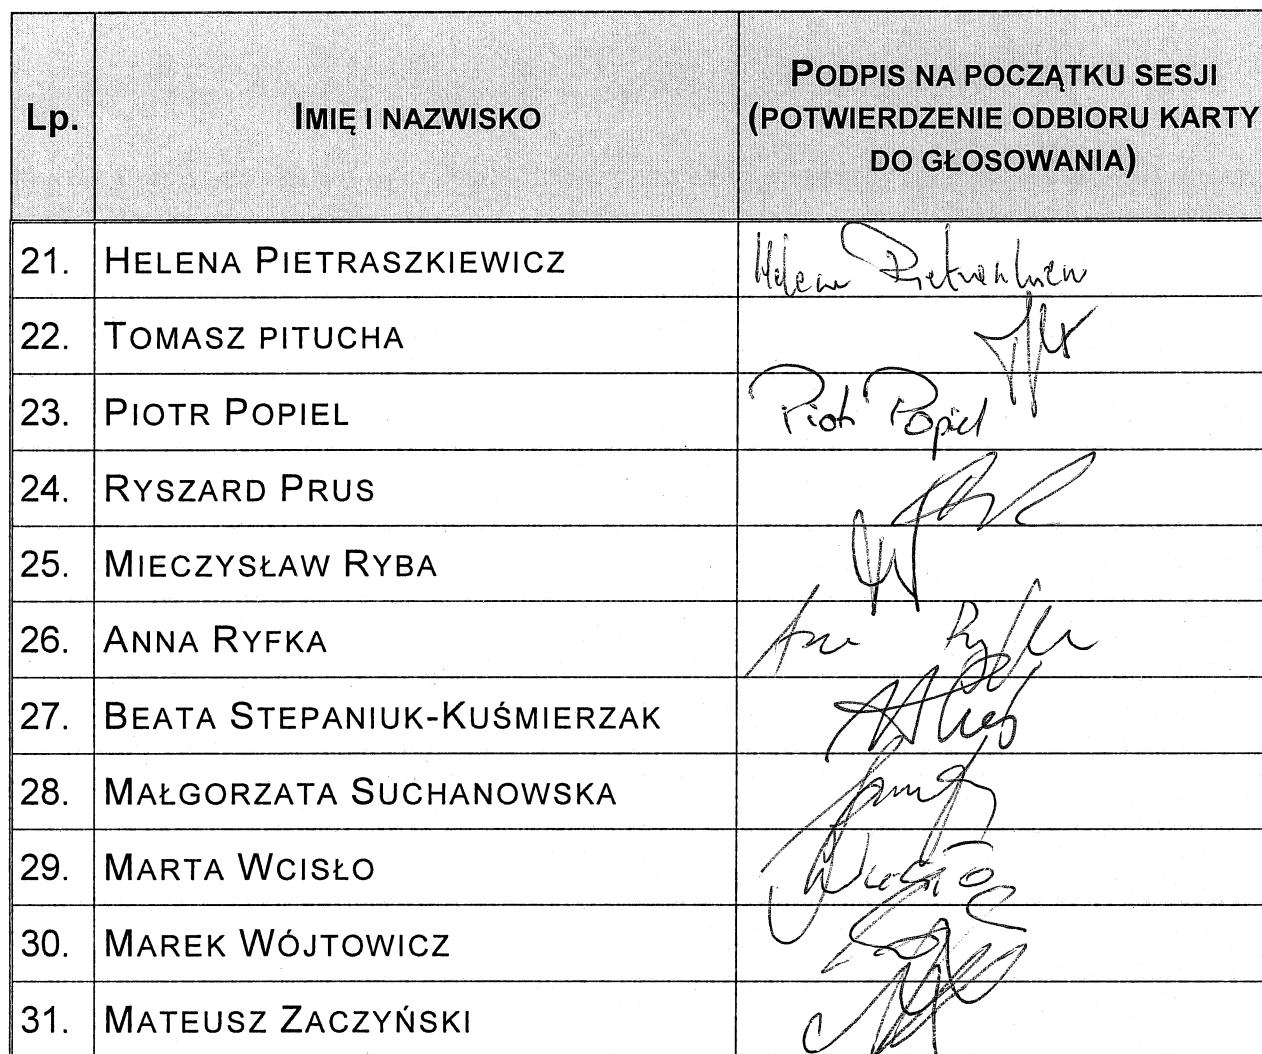 Lp. IMIĘ I NAZWISKO PODPIS NA POCZĄTKU SESJI
(POTWIERDZENIE ODBIORU KARTY
DO GŁOSOWANIA)
21. HELENA PIETRASZKIEWICZ Helena
22. TOMASZ PITUCHA
23. PIOTR POPIEL Piotr Popiel
24. RYSZARD PRUS
25. MIECZYSŁAW RYBA
26. ANNA RYFKA Anna Ryfka
27. BEATA STEPANIUK-KUŚMIERZAK
28. MAŁGORZATA SUCHANOWSKA
29. MARTA WCISŁO Wcisło
30. MAREK WÓJTOWICZ
31. MATEUSZ ZACZYŃSKI